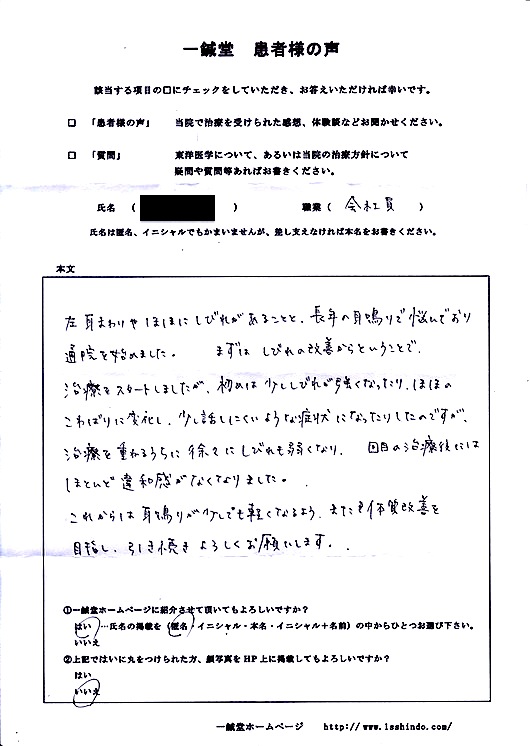 一鍼堂 患者様の声
該当する項目の口にチェックをしていただき、お答えいただければ幸いです。
□ 「患者様の声」 当院で治療を受けられた感想、体験談などお聞かせください。
□ 「質問」 東洋医学について、あるいは当院の治療方針について
疑問や質問等あればお書きください。
氏名 ( ) 職業 ( 会社員 )
氏名は匿名、イニシャルでもかまいませんが、差し支えなければ本名をお書きください。
本文
左耳まわりやほほにしびれがあることと、長年の耳鳴りで悩んでおり
通院を始めました。 まずはしびれの改善からということで、
治療をスタートしましたが、初めは少ししびれが強くなったり、ほほの
こわばりに変化し、少し話しにくいような症状になったりしたのですが、
治療を重ねるうちに徐々にしびれも弱くなり、 回目の治療後には
ほとんど違和感がなくなりました。
これからは耳鳴りが少しでも軽くなるよう、また体質改善を
目指し、引き続きよろしくお願いします。
①一鍼堂ホームページに紹介させて頂いてもよろしいですか?
はい…氏名の掲載を(匿名・イニシャル・本名・イニシャル+名前)の中からひとつお選び下さい。
いいえ
②上記ではいに丸をつけられた方、顔写真をHP上に掲載してもよろしいですか?
はい
いいえ
一鍼堂ホームページ http://www.1sshindo.com/